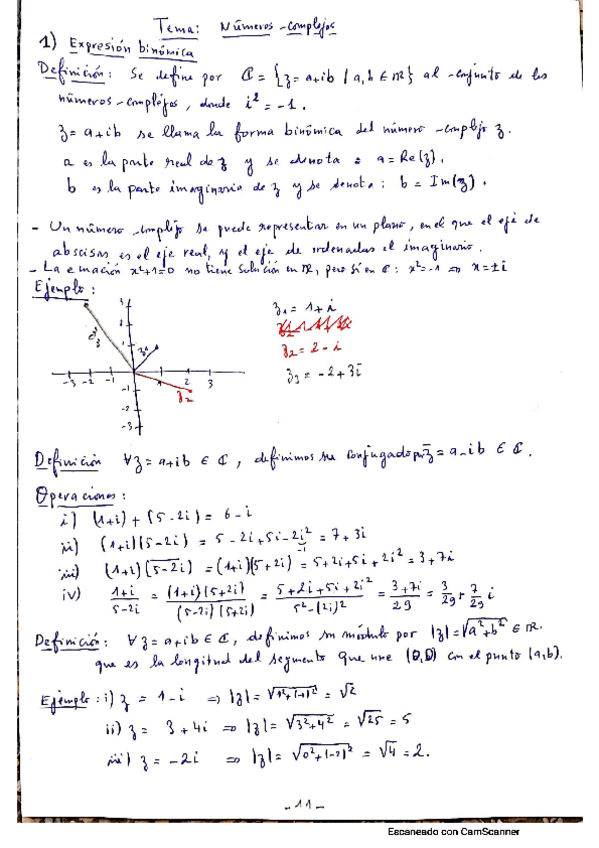 Tema: Números complejos
1) Expresión binómica
Definición: Se define por ℂ = {z = a+ib / a,b ∈ ℝ} al conjunto de los
números complejos, donde i² = -1.
z = a+ib se llama la forma binómica del número complejo z.
a es la parte real de z y se denota: a = Re(z).
b es la parte imaginaria de z y se denota: b = Im(z).
- Un número complejo se puede representar en un plano, en el que el eje de
abscisas es el eje real, y el eje de ordenadas el imaginario.
- La ecuación x²+1=0 no tiene solución en ℝ, pero sí en ℂ: x²=-1 ⇒ x=±i
Ejemplo:
z₁ = 1+i
z₂ = 2-i
z₃ = -2+3i
3
2
1
-3 -2 -1 1 2 3
-1
-2
-3
z₃
z₁
z₂
Definición ∀z = a+ib ∈ ℂ, definimos su conjugado por z̄ = a-ib ∈ ℂ.
Operaciones:
i) (1+i) + (5-2i) = 6-i
ii) (1+i)(5-2i) = 5-2i+5i-2i² = 7+3i
-1
iii) (1+i)(5-2i)‾ = (1+i)(5+2i) = 5+2i+5i+2i² = 3+7i
iv) (1+i)/(5-2i) = (1+i)(5+2i)/(5-2i)(5+2i) = (5+2i+5i+2i²)/(5²-(2i)²) = (3+7i)/29 = 3/29 + 7/29 i
Definición: ∀z = a+ib ∈ ℂ, definimos su módulo por |z| = √(a²+b²) ∈ ℝ.
que es la longitud del segmento que une (0,0) con el punto (a,b).
Ejemplo: i) z = 1-i ⇒ |z| = √(1²+(-1)²) = √2
ii) z = 3+4i ⇒ |z| = √(3²+4²) = √25 = 5
iii) z = -2i ⇒ |z| = √(0²+(-2)²) = √4 = 2.
-11-
Escaneado con CamScanner